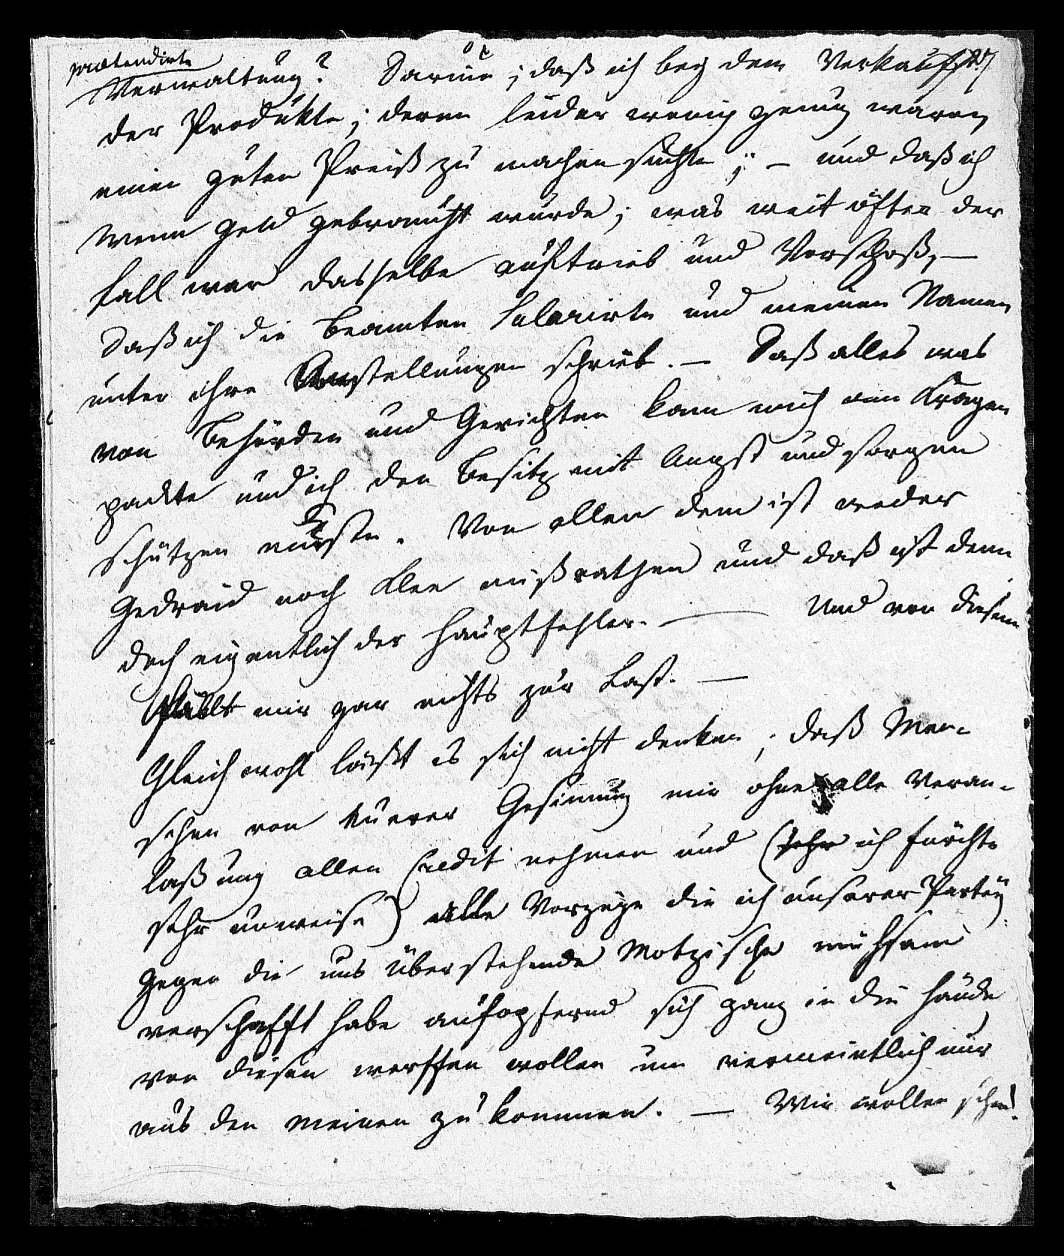 praetendirte
Verwaltung? Darinn; daß ich bey dem Verkauf
der Produkte; deren leider wenig genug waren
einen guten Preiß zu machen suchte; – und daß ich
wenn Geld gebraucht wurde; was weit öfter der
fall war dasselbe auftrieb und Vorschoß, –
Daß ich die Beamten Salarirte und meinen Namen
unter ihre Vorstellungen schrieb. – Daß alles was
von Behörden und Gerichten kam mich am Kragen
packte und ich den Besitz mit Angst und sorgen
schützen muste. Von allen dem ist weder
Gedraid noch Klee mißrathen und daß ist denn
doch eigentlich der Hauptfehler. – Und von diesem
fällt mir gar nichts zur Last. –
Gleichwohl läßt es sich nicht denken, daß Men-
schen von Euerer Gesinnung mir ohne alle Veran-
laßung allen Credit nehmen und (sehr ich fürchte
sehr unweise) alle Vorzüge die ich unserer Partey
gegen die uns überstehende Motzische mühsam
verschafft habe aufopfernd sich ganz in die Hände
von diesen werffen wollen um vermeintlich nur
aus den meinen zu kommen. – Wir wollen sehen